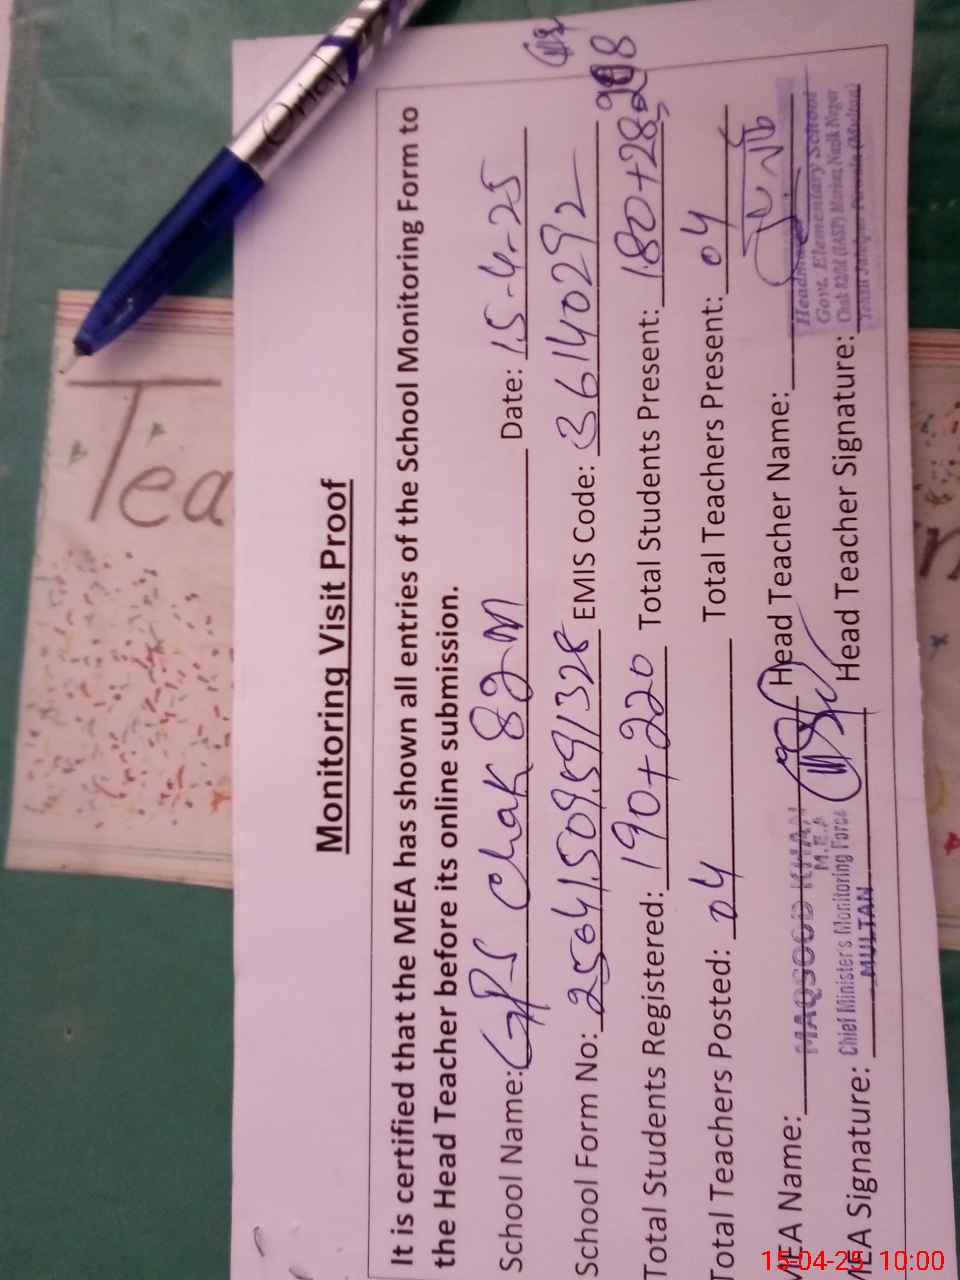 Monitoring Visit Proof
It is certified that the MEA has shown all entries of the School Monitoring Form to
the Head Teacher before its online submission.
School Name: GPS Chak 82M Date: 15-4-25
School Form No: EMIS Code: 36140292
Total Students Registered: 190+220 Total Students Present: 180+28
Total Teachers Posted: 04 Total Teachers Present: 04
MEA Name: MAQSOOD KHAN Head Teacher Name:
M.E.A
Chief Minister's Monitoring Force
MULTAN
MEA Signature: Head Teacher Signature:
Govt. Elementary School
Original
Tea
15-04-25 10:00